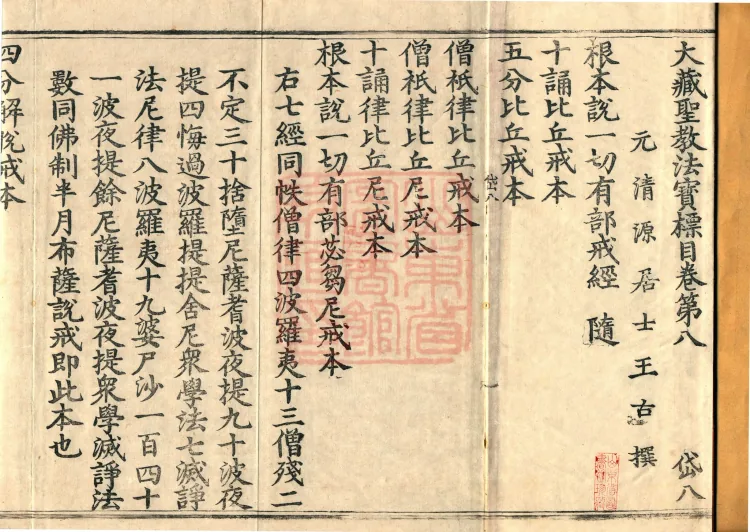 大藏聖教法寶標目卷第八 岱八
元清源居士王古撰
根本說一切有部戒經 隨
十誦比丘戒本
五分比丘戒本
岱八
僧祇律比丘戒本
僧祇律比丘尼戒本
十誦律比丘尼戒本
根本說一切有部苾芻尼戒本
右七經同帙僧律四波羅夷十三僧殘二
不定三十捨墮尼薩耆波夜提九十波夜
提四悔過波羅提提舍尼衆學法七滅諍
法尼律八波羅夷十九婆尸沙一百四十
一波夜提餘尼薩耆波夜提衆學滅諍法
數同佛制半月布薩說戒即此本也
四分解脫戒本